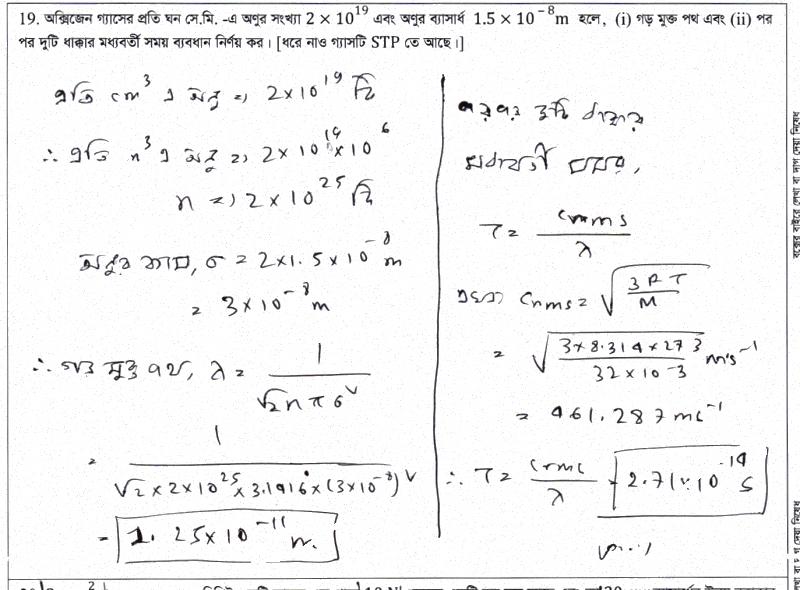 19. অক্সিজেন গ্যাসের প্রতি ঘন সে.মি. -এ অণুর সংখ্যা 2 × 10¹⁹ এবং অণুর ব্যাসার্ধ 1.5 × 10⁻⁸m হলে, (i) গড় মুক্ত পথ এবং (ii) পর
পর দুটি ধাক্কার মধ্যবর্তী সময় ব্যবধান নির্ণয় কর। [ধরে নাও গ্যাসটি STP তে আছে।]
প্রতি cm³ এ অনু => 2×10¹⁹ টি
∴ প্রতি m³ এ অনু => 2×10¹⁹×10⁶
n => 2×10²⁵ টি
অনুর ব্যাস, σ = 2×1.5×10⁻⁸ m
= 3×10⁻⁸ m
∴ গড় মুক্ত পথ, λ = 1/√2nπσ²
= 1/√2×2×10²⁵×3.1416×(3×10⁻⁸)²
= 1.25×10⁻¹¹ m.
পরপর দুটি ধাক্কার
মধ্যবর্তী সময়,
τ = Crms/λ
এখন Crms = √3RT/M
= √3×8.314×273/32×10⁻³ ms⁻¹
= 461.287 ms⁻¹
∴ τ = Crms/λ = 2.71×10⁻¹⁴ s
বক্সের বাইরে লেখা বা দাগ দেয়া নিষেধ